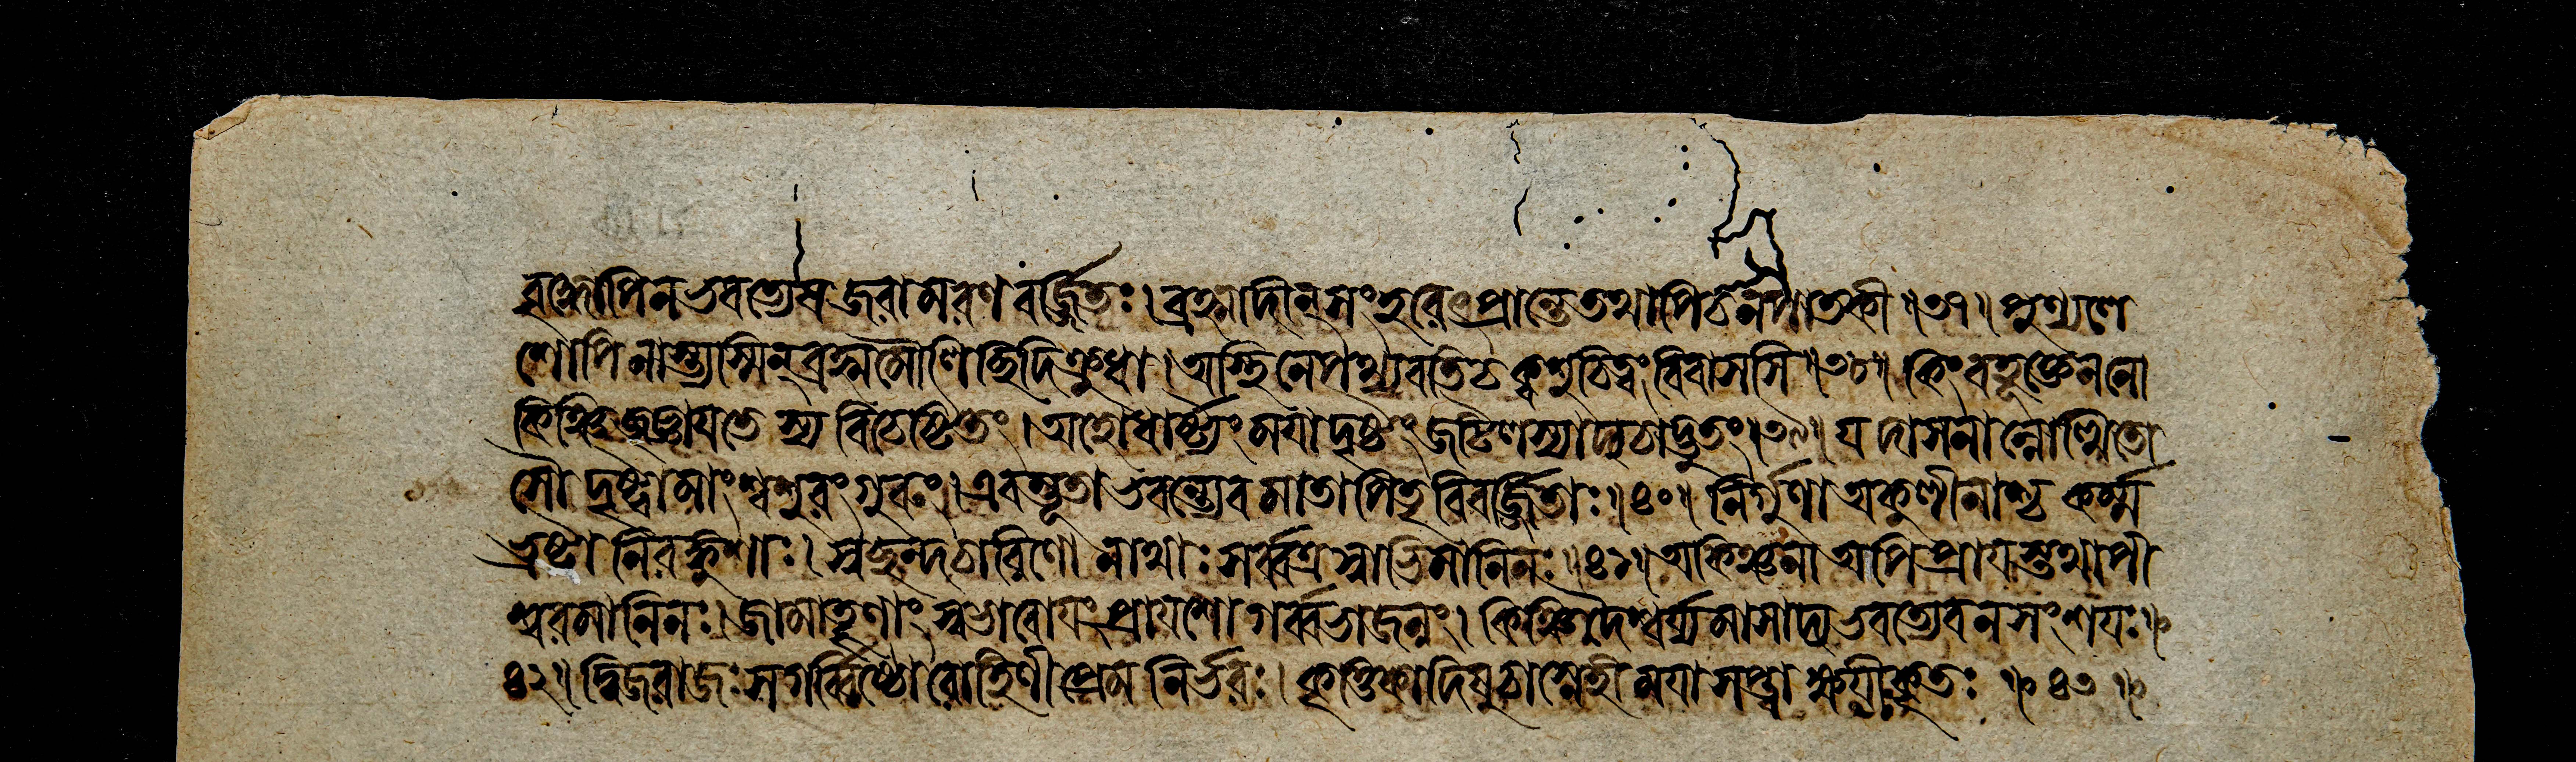 বৃদ্ধোপি ন ভবত্যেষ জরামরণবর্জ্জিতঃ । ব্রহ্মাদীন্ সংহরেৎ প্রান্তে তথাপি চ ন পাতকী ॥ ৩৭ ॥ পুণ্যলে
শোপি নাস্ত্যস্মিন্ ব্রহ্মমৌলিচ্ছিদি ক্রুধা । অস্থিনেপথ্যবতি চ ক্ব শুচিত্বং বিবাসসি ॥ ৩৮ ॥ কিং বহূক্তেন নো
কিঞ্চিজ্জ্ঞায়তেস্য বিচেষ্টিতং । অহো ধার্ষ্ট্যং ময়া দৃষ্টং জটিলস্যাদ্য চাদ্ভুতং । ৩৯ ॥ যদাসনান্নোত্থিতো
সৌ দৃষ্ট্বা মাং শ্বশুরং গুরুং । এবম্ভূতা ভবন্ত্যেব মাতাপিতৃবিবর্জ্জিতাঃ ॥ ৪০ ॥ নির্গুণা অকুলীনাশ্চ কর্ম্ম
ভ্রষ্টা নিরঙ্কুশাঃ । স্বচ্ছন্দচারিণো নাথাঃ সর্ব্বত্র স্বাভিমানিনঃ ॥ ৪১ ॥ অকিঞ্চনা অপি প্রায়স্তথাপী
শ্বরমানিনঃ । জামাতৄণাং স্বভাবোয়ং প্রায়শো গর্ব্বভাজনং । কিঞ্চিদৈশ্বর্য্যমাসাদ্য ভবত্যেব ন সংশয়ঃ ॥
৪২ ॥ দ্বিজরাজঃ স গর্ব্বিষ্ঠো রোহিণীপ্রেমনির্ভরঃ । কৃত্তিকাদিষু চাস্নেহী ময়া শপ্তঃ ক্ষয়ীকৃতঃ ॥ ৪৩ ॥